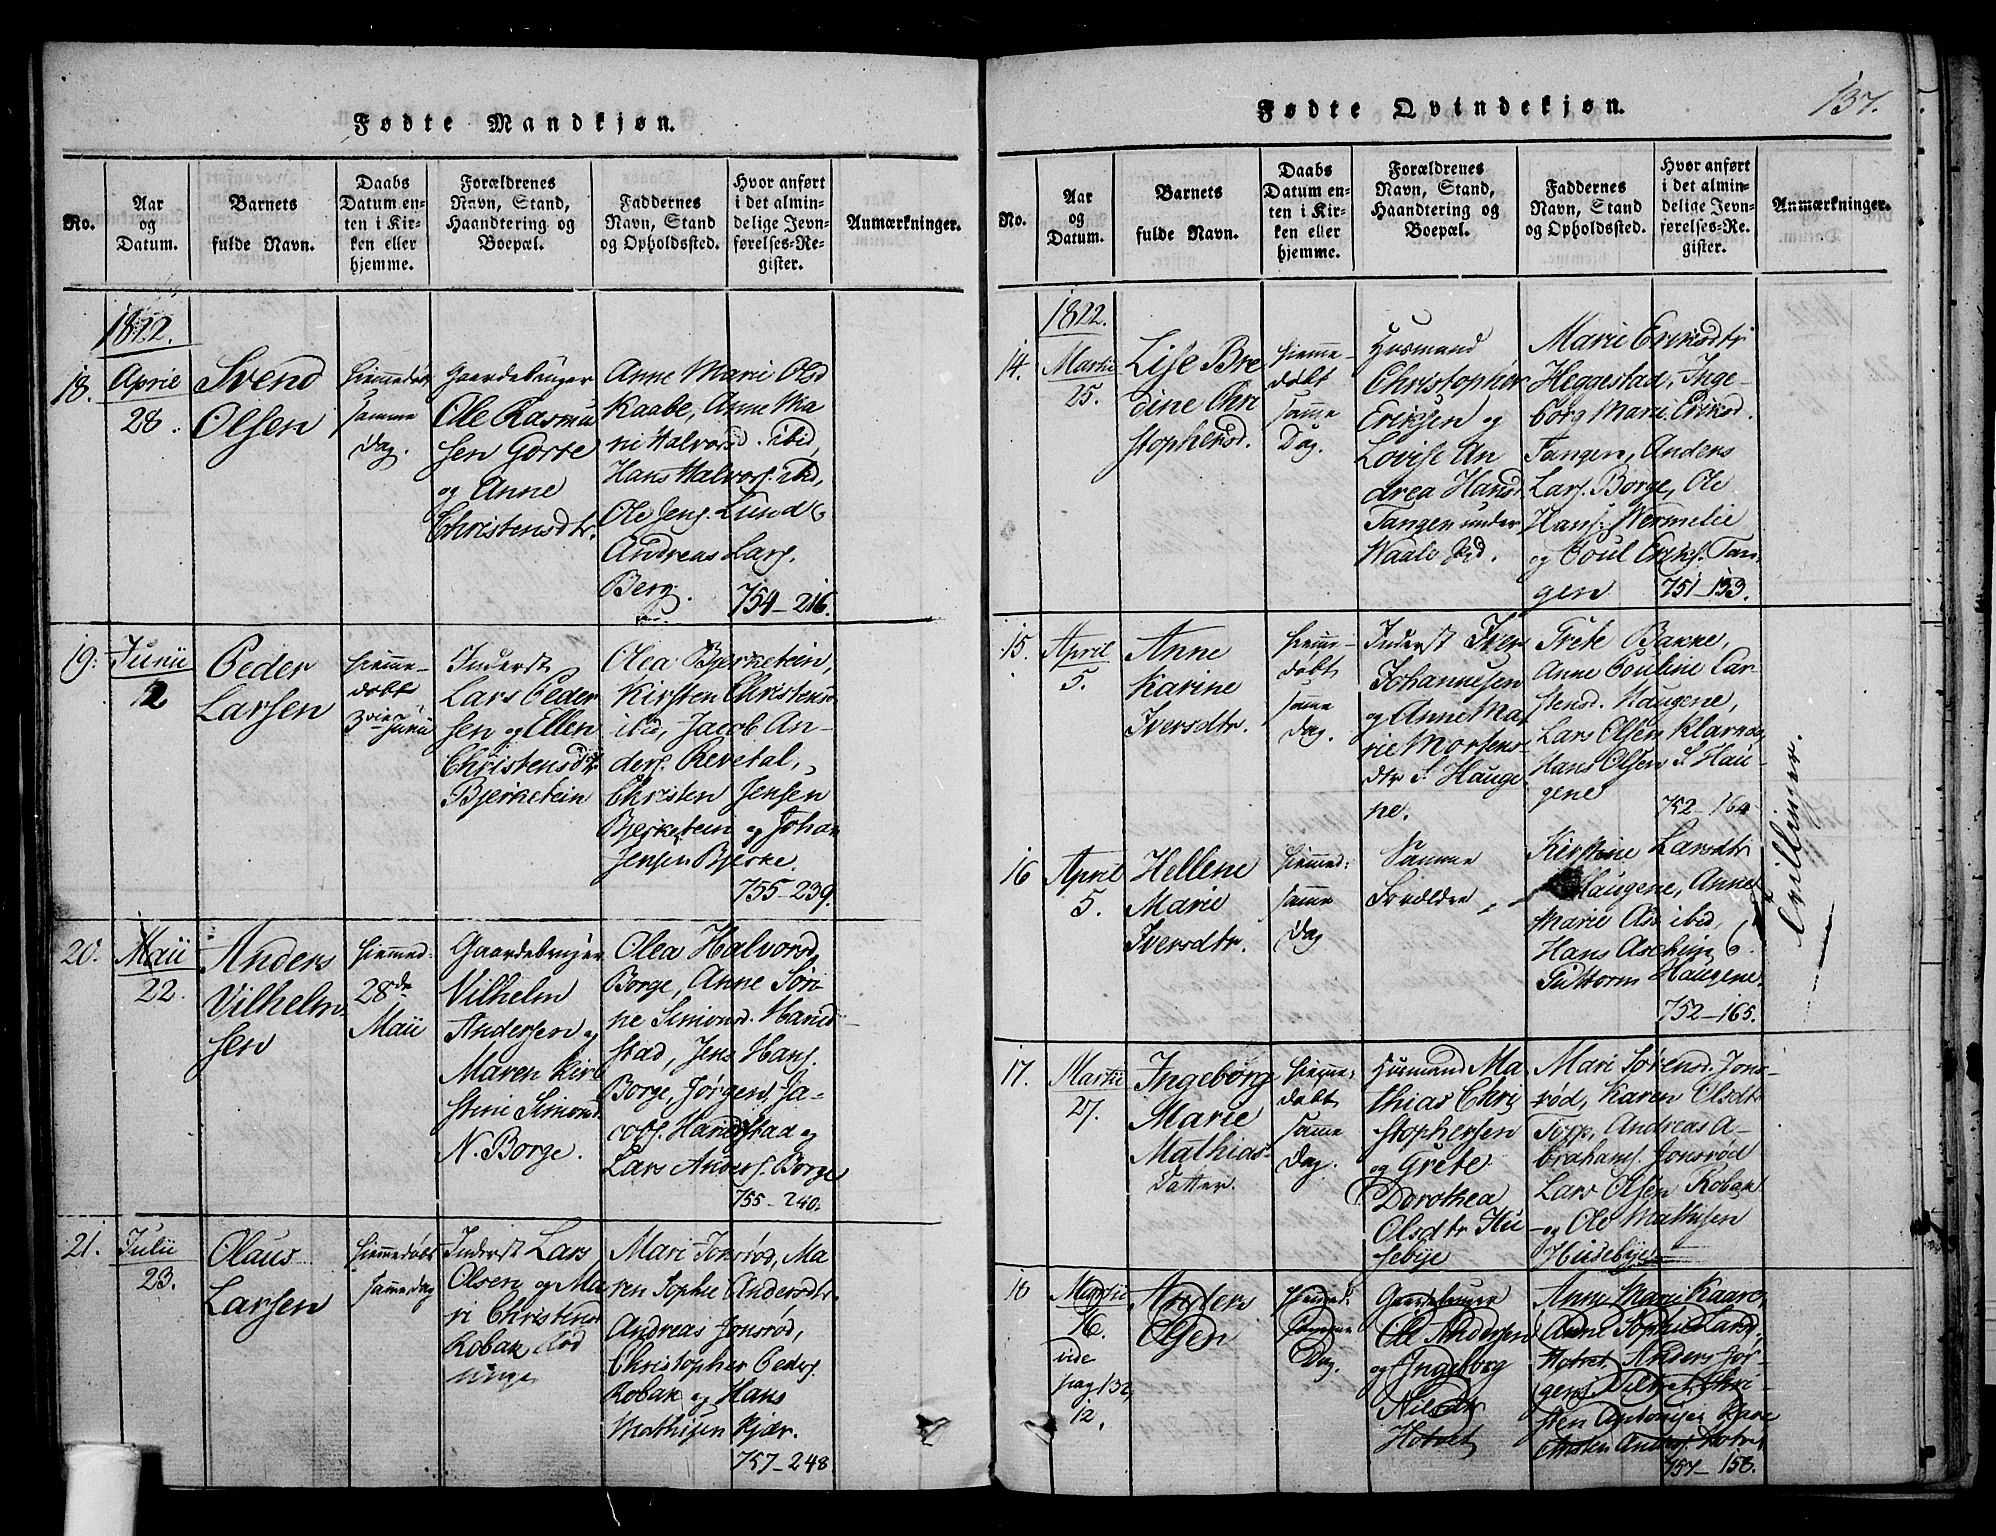 Fødte Mandkjøn.
No.
Aar
og
Datum.
Barnets
fulde Navn.
Daabs
Datum en-
ten i Kir-
ken eller
hjemme.
Forældrenes
Navn, Stand,
Haandtering og
Boepæl.
Faddernes
Navn, Stand
og Opholdssted.
Hvor anført
i det almin-
delige Jevn-
førelses-Re-
gister.
Anmærkninger.
1822.
18.
April
28.
Svend
Olsen
Hiemmedøbt
samme
Dag.
Gaardebruger
Ole Rasmu
sen Gorre
og Anne
Christensdtr.
Anne Marie Olsd
Kaabe, Anne Ma
rie Halvorsd. ibid,
Hans Halvors. ibid,
Ole Jens. Lund &
Andreas Lars.
Berg.
754-216.
19.
Junii
2
Peder
Larsen
Hiemme-
døbt
Junii
Inderst
Lars Peder
sen og Ellen
Christensdtr.
Bjerketein
Olea Bjerketein,
Kirsten Christensd.
ibid, Jacob An-
ders. Revetal,
Christen Jensen
Bjerketein og Johan
Jensen Bjerke.
755-239.
20.
Maii
22.
Anders
Vilhelm
sen
Hiemmed
28de
Maii
Gaardebruger
Vilhelm
Andersen og
Maren Kir
stine Simonsd.
N. Borge.
Olea Halvorsd
Borge, Anne Sør
ne Simonsd. Harid
stad, Jens Hans.
Borge, Jørgen Ja-
cobs. Haridstad og
Lars Anders. Borge
755-240.
21.
Julii
23.
Olaus
Larsen
Hiemmedøbt
samme dag
Inderst Lars
Olsen og Ma
ri Christensd
Robak
Mari Jonsrød, Ma
ren Sophie Andersdtr.
Andreas Jonsrød,
Christopher Peders.
Robak og Hans
Mathisen Kjær.
757-248
Fødte Qvindekjøn.
137.
No.
Aar
og
Datum.
Barnets
fulde Navn.
Daabs
Datum en-
ten i Kir-
ken eller
hjemme.
Forældrenes
Navn, Stand,
Haandtering og
Boepæl.
Faddernes
Navn, Stand
og Opholdssted.
Hvor anført
i det almin-
delige Jevn-
førelses-Re-
gister.
Anmærkninger.
1822.
14.
Martii
25.
Lise Bre
dine Chri
stophersd.
Hiemme-
døbt
samme
Dag.
Husmand
Christopher
Eriksen og
Lovise An
drea Hansd
Tangen under
Waale
Marie Eriksdtr
Heggestad, Inge-
borg Marie Eriksd.
Tangen, Anders
Lars. Borge, Ole
Hans. Wermelie
og Poul Eriks. Tan-
gen
751-153.
15.
April
5.
Anne
Karine
Iversdtr.
Hiemme-
døbt
samme
Dag.
Inderst Iver
Johannesen
og Anne Ma
rie Mortens
dtr S. Hauge
ne.
Grete Bakke,
Anne Pouline Car-
stensd. Haugene,
Lars Olsen Klavenæs
Hans Olsen S. Hau-
gene
752-164
16
April
5.
Hellene
Marie
Iversdtr.
Hiemmed:
samme
Dag
Samme
Forældre
Kirstine Larsdtr
Haugene, Anne
Marie Aas ibid,
Hans Aschim &
Guttorm Haugene.
752-165.
Tvillinger.
17.
Martii
27.
Ingeborg
Marie
Mathias-
Datter.
Hiemme-
døbt
samme
Dag.
Husmand Ma
thias Chri
stophersen
og Grete
Dorothea
Olsdtr Hu
sebye
Mari Sørensd. Jons
rød, Karen Olsdtr
Topp, Andreas A-
brahams. Jonsrød
Lars Olsen Robak
og Ole Mathisen
Husebye
18
Martii
16.
vide
pag 132,
12.
Anders
Olsen
Hiemmed:
samme
Dag.
Gaardebruger
Ole Andersen
og Ingeborg
Nilsdtr
Hotvet
Anne Marie Kaare,
Anne Sophie
Hotvet, Anders Jør-
gens. Chri-
sten
Anders. Hotvet
757-158.